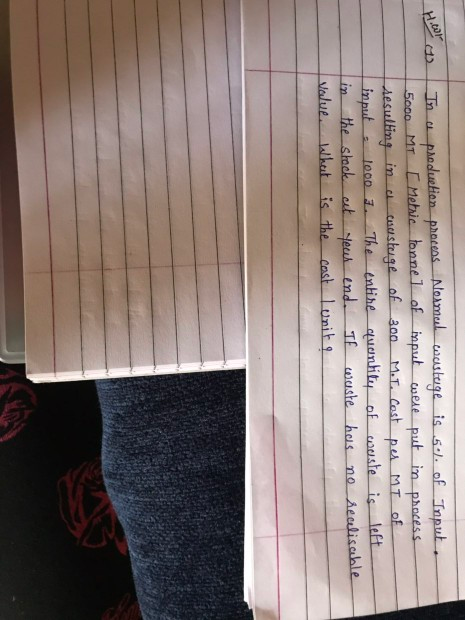 H.W (1) In a production process Normal wastage is 5% of Input.
5000 MT [Metric tonne] of input were put in process
resulting in a wastage of 300 M.T. Cost per MT of
input = 1000 ₹. The entire quantity of waste is left
in the stock at year end. If waste has no realisable
value. What is the cost / unit?